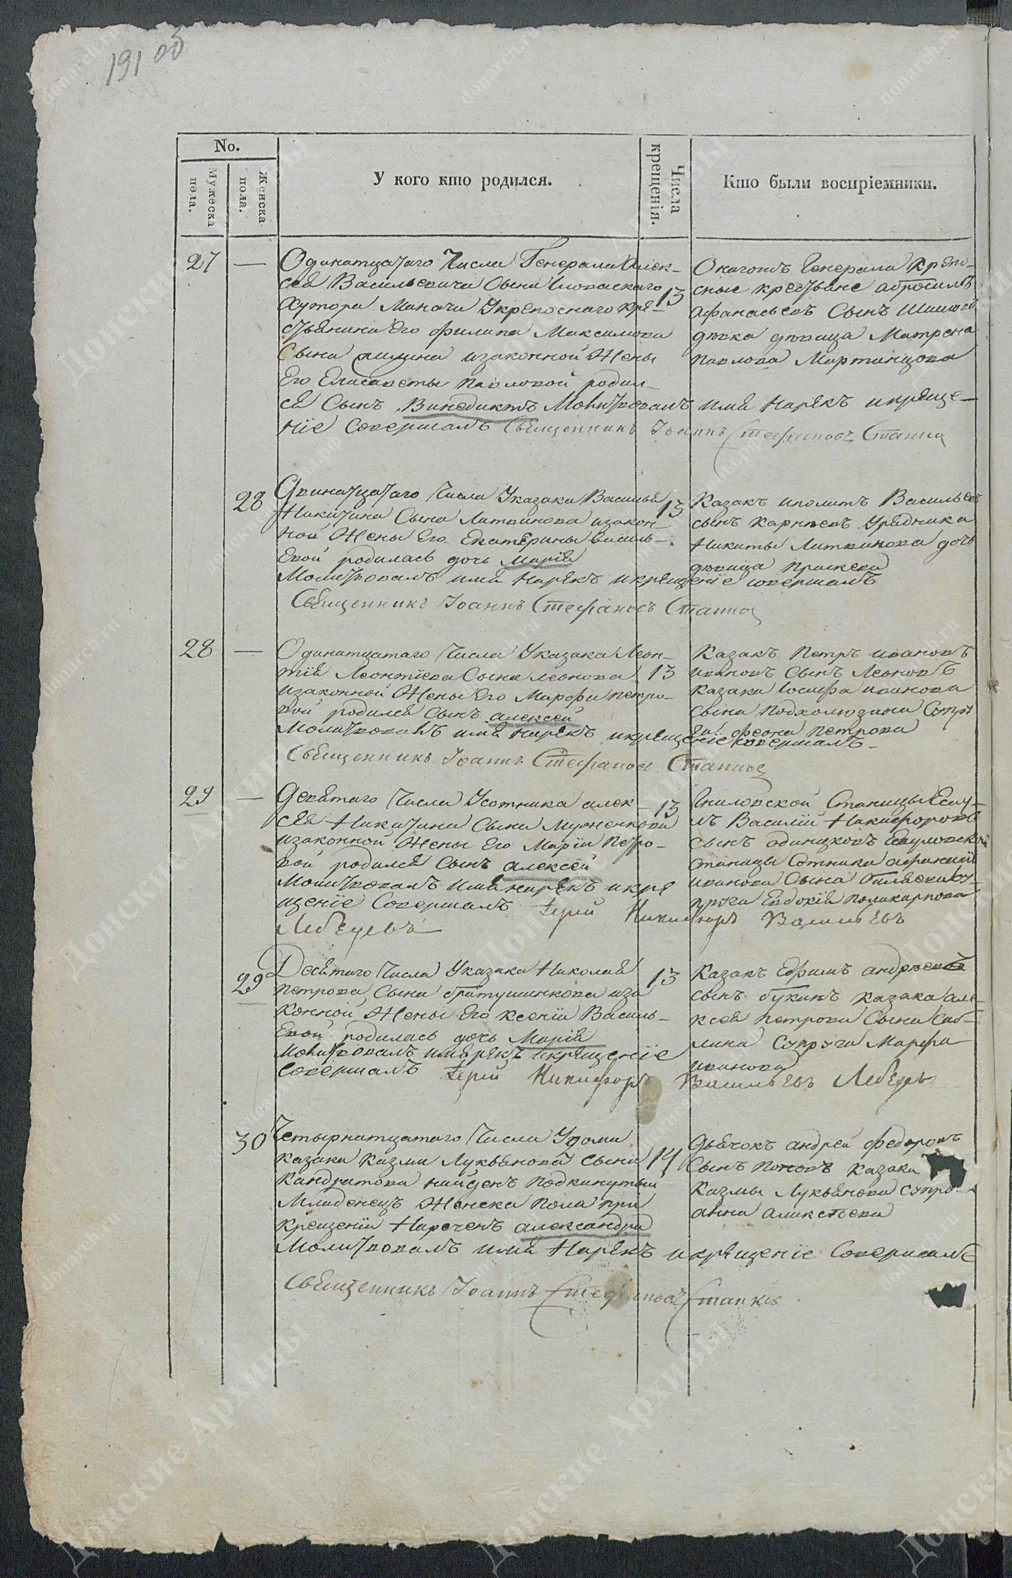 191 об
No.
Мужеска пола.
Женска пола.
У кого кто родился.
Числа крещенія.
Кто были воспріемники.
27 —
Одинатцатаго Числа Генерала Алек-
сея Васильевича Сына Иловаскаго
Хутора Маначи Укрепоснаго кре-
стьянина Его Филипа Максимова
Сына изаконной Жены
Его Елисаветы Павловой родил-
ся Сынъ Винедиктъ Молитвовалъ имя Нарекъ икреще-
ніе Совершалъ Священникъ Іоаннъ Стефановъ
13
Генерала Крепо-
сные крестьяне
Афанасьевъ Сынъ
девка девица Матрена
Павлова Мартинцова
28
Двинатцатаго Числа Указака Василья
Никитина Сына Литвинова изакон-
ной Жены Его Екатерины Василь-
Евой родилась дочь Марія
Молитвовалъ имя Нарекъ икрещеніе совершалъ
Священникъ Іоаннъ Стефановъ
13
Казакъ иполитъ Васильевъ
сынъ Карпъевъ Урядника
Никиты Литвинова дочь
девица
28 —
Одинатцатаго Числа Указака Леон-
тія Леонтіева Сына Леонова
изаконной Жены Его Марфы петро-
вой родился Сынъ алексей
Молитвовалъ имя Нарекъ икрещеніе совершалъ
Священникъ Іоаннъ Стефановъ
13
Казакъ Петръ ивановъ
ивановъ Сынъ Леоновъ
казака Іосифа иванова
сына Подхолюзина Супру
га петрова
29 —
Девятаго Числа Усотника алек-
сея Никитина Сына
изаконной Жены Его Маріи Петро-
вой родился Сынъ алексей
Молитвовалъ имя нарекъ икре
щеніе Совершалъ Іерей Никифоръ Васильевъ
Лебедевъ
13
Гниловской Станицы Есау-
лъ Василій Никифоровъ
сынъ одинцовъ
станицы Сотника афанасія
иванова Сына Су-
пруга Евдокія поликарпова
29
Десятаго Числа Указака Николая
петрова Сына братушинкова иза
конной Жены Его ксеніи Василь-
Евой родилась дочь Марія
Молитвовалъ имя нарекъ икрещеніе
Совершалъ Іерей Никифоръ Васильевъ Лебедевъ
13
Казакъ Ефимъ андреевъ
сынъ букинъ казака Але-
ксея петрова Сына
Супруга Марфа
иванова
30
Четырнатцатаго Числа Удома
казака Казми Лукьянова сына
Кандратова найденъ подкинутый
Младенецъ Женска Пола при
Крещеніи Нареченъ александра
Молитвовалъ имя Нарекъ икрещеніе Совершалъ
Священникъ Іоаннъ Стефановъ
14
дьячокъ андрей федоровъ
Сынъ Поповъ казака
Казмы Лукьянова супру
анна алексеева